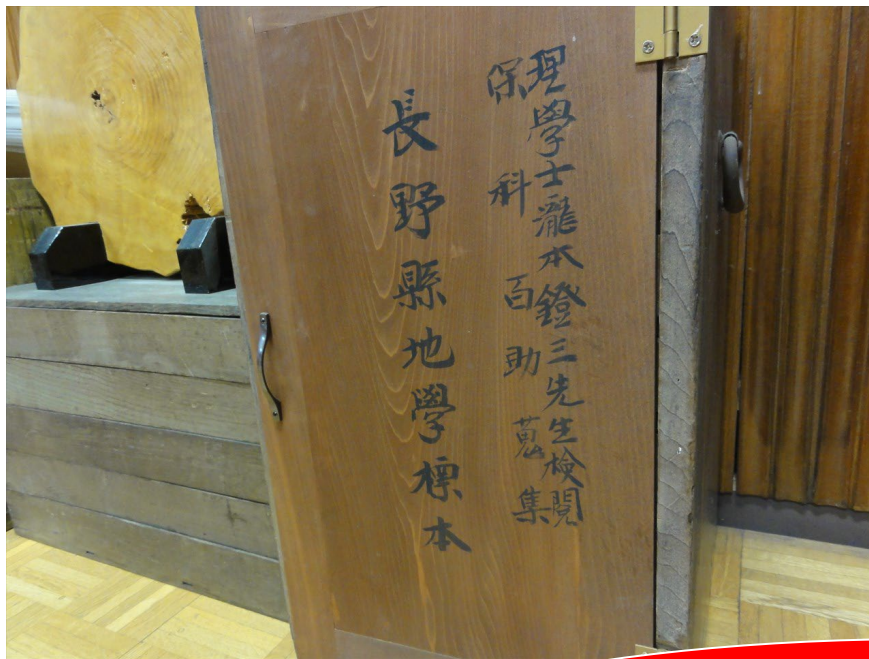 理學士瀧本鐙三先生檢閲
保科百助蒐集
長野縣地學標本